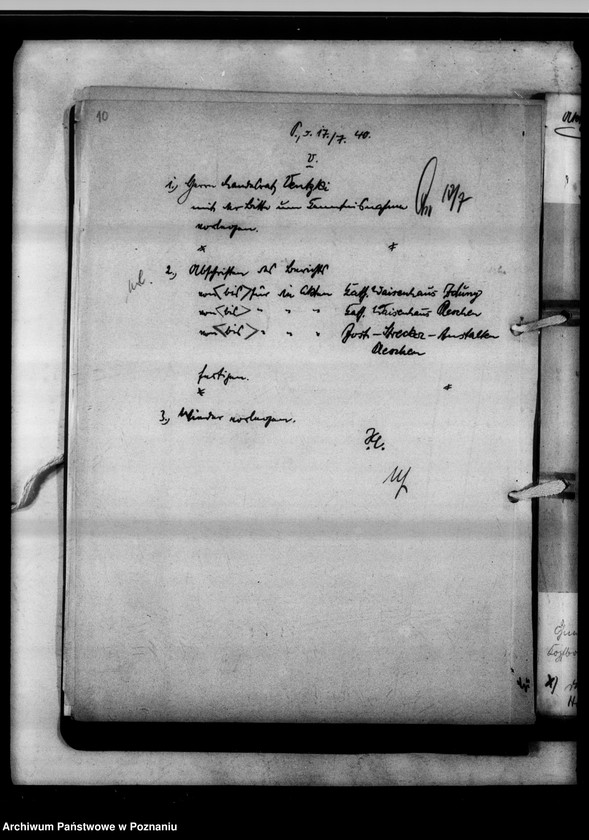 10
P., d. 17./7. 40.
V.
1., Herrn Landesrat Ventzki
mit der Bitte um Kenntnisnahme 18/7
vorlegen.
* *
2., Abschriften des Berichts
von <bis> für die Akten Kath. Waisenhaus
von <bis> " " " Kath. Waisenhaus Pleschen
von <bis> " " " Jost-Strecker-Anstalten
Pleschen
fertigen.
* *
3., Wieder vorlegen.
Archiwum Państwowe w Poznaniu